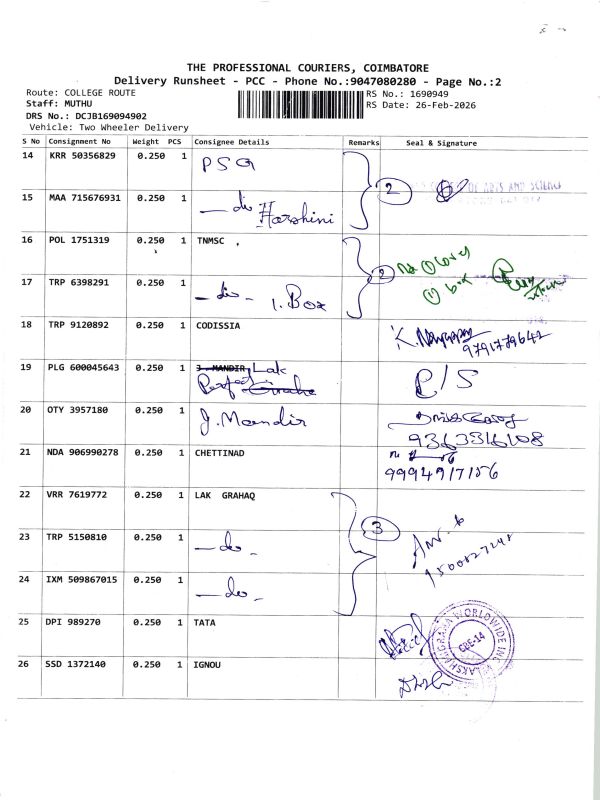 THE PROFESSIONAL COURIERS, COIMBATORE
Delivery Runsheet - PCC - Phone No.:9047080280 - Page No.:2
Route: COLLEGE ROUTE
RS No.: 1690949
Staff: MUTHU
RS Date: 26-Feb-2026
DRS No.: DCJB169094902
Vehicle: Two Wheeler Delivery
S No Consignment No Weight PCS Consignee Details Remarks Seal & Signature
14 KRR 50356829 0.250 1 PSG
2
OF ARTS AND SCIENCE
15 MAA 715676931 0.250 1 — do Harshini
16 POL 1751319 0.250 1 TNMSC
2
17 TRP 6398291 0.250 1 — do - 1. Box
① box
18 TRP 9120892 0.250 1 CODISSIA
9791779642
19 PLG 600045643 0.250 1 J. MANDIR Lak
Perfect Graha
P/S
20 OTY 3957180 0.250 1 J. Mandir
9363316108
21 NDA 906990278 0.250 1 CHETTINAD
9994917156
22 VRR 7619772 0.250 1 LAK GRAHAQ
3
23 TRP 5150810 0.250 1 — do -
24 IXM 509867015 0.250 1 — do -
25 DPI 989270 0.250 1 TATA
LAKSHAGRAHA WORLDWIDE INC
CBE-14
26 SSD 1372140 0.250 1 IGNOU